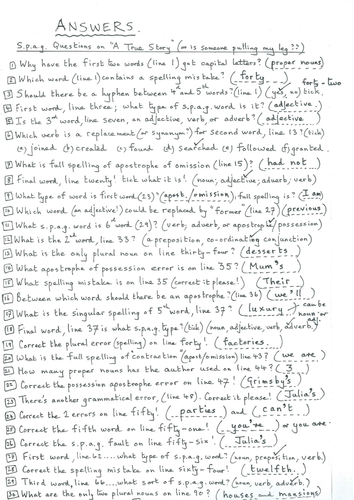 ANSWERS.
S.p.a.g. Questions on "A True Story" (or is someone pulling my leg??)
1 Why have the first two words (line 1) got capital letters? (proper nouns)
2 Which word (line 1) contains a spelling mistake? (forty)
3 Should there be a hyphen between 4th and 5th words? (line 1) (yes, no) tick. forty-two
4 First word, line three; what type of s.p.a.g. word is it? (adjective)
5 Is the 3rd word, line seven, an adjective, verb, or adverb? (adjective)
6 Which verb is a replacement (or synonym?) for second word, line 13? (tick)
(a) joined (b) created (c) found (d) searched (e) followed (f) granted.
7 What is full spelling of apostrophe of omission (line 15)? (had not)
8 Final word, line twenty! tick what it is! (noun; adjective; adverb; verb)
9 What type of word is first word (23)? (apost./omission), full spelling is? (I am)
10 Which word (an adjective!) could be replaced by "former" (line 27) (previous)
11 What s.p.a.g. word is 6th word (29)? (verb; adverb, or apostrophe/possession)
12 What is the 2nd word, line 33? (a preposition, co-ordinating conjunction)
13 What is the only plural noun on line thirty-four? (desserts)
14 What apostrophe of possession error is on line 35? (Mum's)
15 What spelling mistake is on line 35 (correct it please!) (Their)
16 Between which word should there be an apostrophe? (line 36) (we'll)
17 What is the singular spelling of 5th word, line 37? (luxury) can be noun/adj.
18 Final word, line 37 is what s.p.a.g. type? (tick) (noun, adjective, verb, adverb)
19 Correct the plural error (spelling) on line forty! (factories)
20 What is the full spelling of contraction (apost/omission) line 43? (we are)
21 How many proper nouns has the author used on line 44? (3)
22 Correct the possession apostrophe error on line 47! (Grimsby's)
23 There's another grammatical error, (line 48). Correct it please! (Julia's)
24 Correct the 2 errors on line fifty! (parties) and (can't)
25 Correct the fifth word on line fifty-one! (you're) or you are.
26 Correct the s.p.a.g. fault on line fifty-six! (Julia's)
27 First word, line 62.... what type of s.p.a.g. word? (noun, preposition, verb)
28 Correct the spelling mistake on line sixty-four! (twelfth)
29 Third word, line 66...what sort of s.p.a.g. word? (noun, verb, adverb)
30 What are the only two plural nouns on line 70? (houses and mansions)